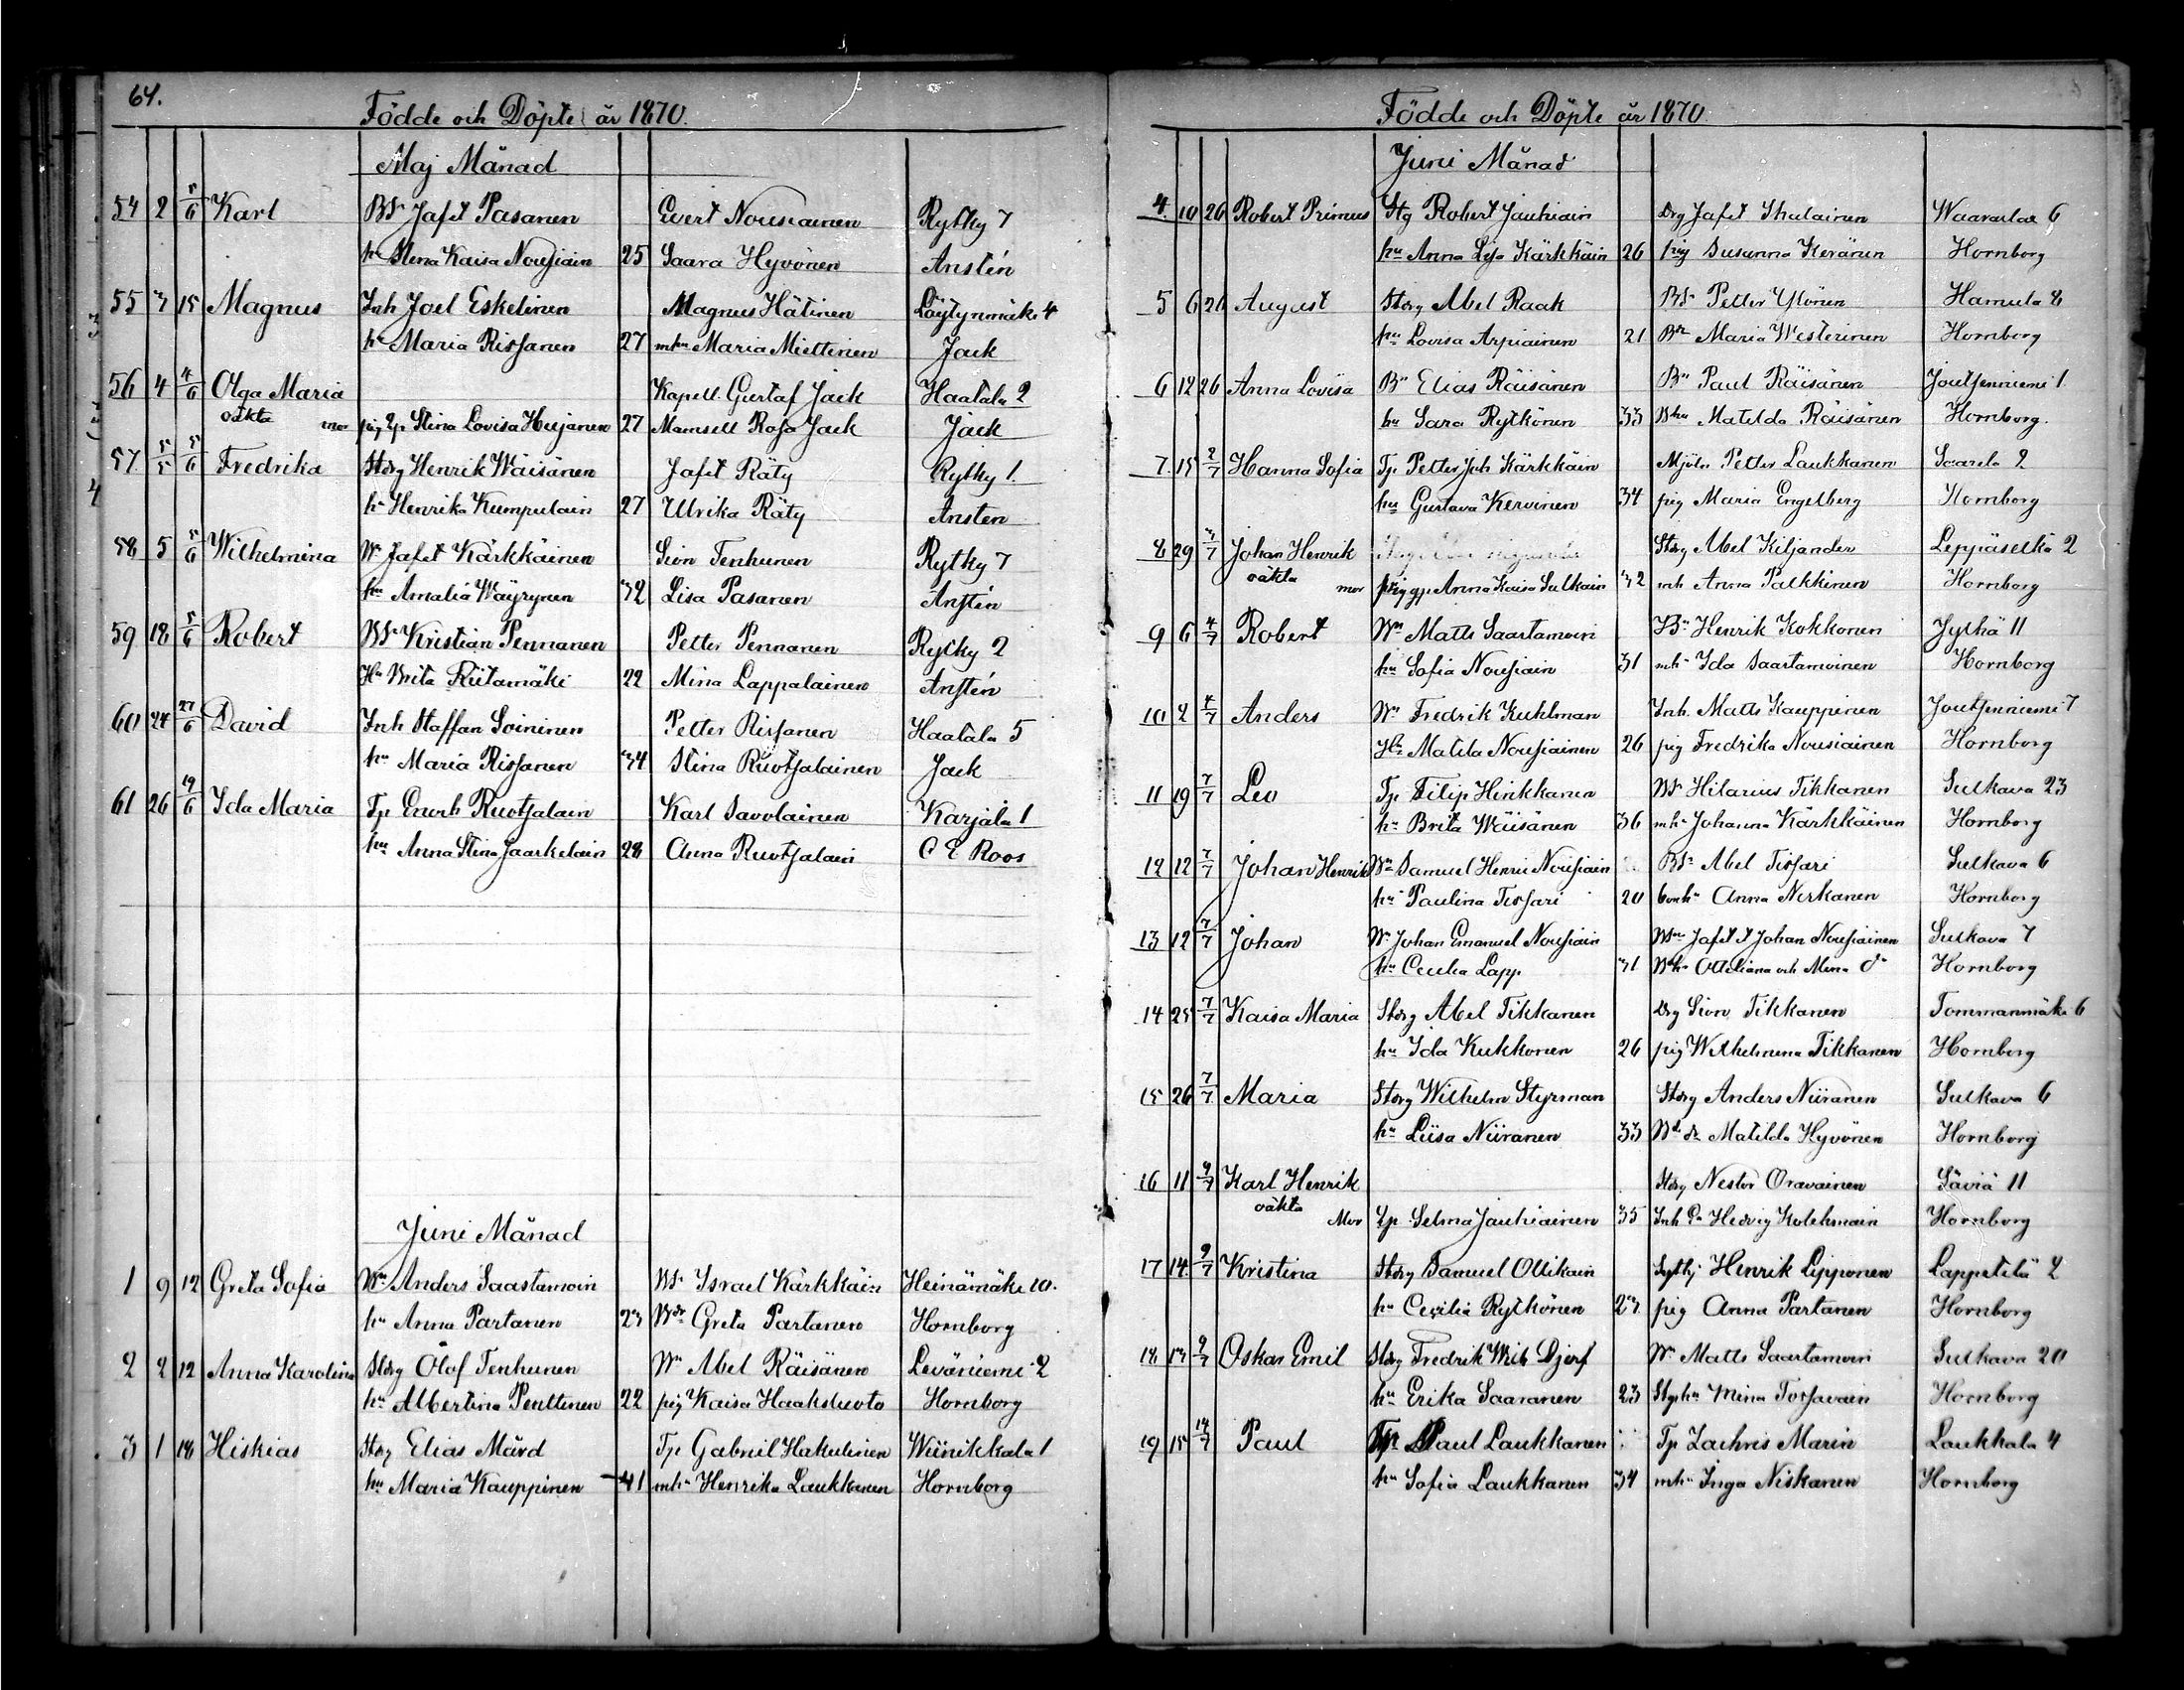 64.
Födde och Döpte år 1870.
Maj Månad
54 2 5/6 Karl Bds Jafet Pasanen Evert Nousiainen Rytky 7
hu Stina Kaisa Nousiain 25 Saara Hyvönen Anstén
55 3 15 Magnus Inh Joel Eskelinen Magnus Hätinen Löytynmäki 4
hu Maria Rissanen 27 mhu Maria Miettinen Jack
56 4 4/6 Olga Maria Kapell. Gustaf Jack Haatala 2
oäkta mor pig Stina Lovisa Hujanen 27 Mamsell Rosa Jack Jack
57 5/5 5/6 Fredrika Storg Henrik Wäisänen Jafet Räty Rytky 1.
hu Henrika Kumpulain 27 Ulrika Räty Ansten
58 5 5/6 Wilhelmina Wn Jafet Kärkkäinen Sion Tenhunen Rytky 7
hu Amalia Wäyrynen 32 Lisa Pasanen Anstén
59 18 5/6 Robert Bds Kristian Pennanen Petter Pennanen Rytky 2
Hu Brita Riitamäki 22 Mina Lappalainen Anstén
60 24 27/6 David Inh Staffan Soininen Petter Rissanen Haatala 5
hu Maria Rissanen 34 Stina Ruotsalainen Jack
61 26 19/6 Ida Maria Tp Enock Ruotsalain Karl Savolainen Karjala 1
hu Anna Stina Jaarkelain 28 Anna Ruotsalain C E Roos
Juni Månad
1 9 12 Greta Sofia Wn Anders Saastamoin Bds Israel Kärkkäin Heinämäki 10.
hu Anna Partanen 23 Wdr Greta Partanen Hornborg
2 2 12 Anna Karolina Storg Olof Tenhunen Wn Abel Räisänen Leväniemi 2
hu Albertina Penttinen 22 pig Kaisa Haaksluoto Hornborg
3 1 18 Hiskias Storg Elias Mård Tp Gabriel Hakulinen Wiinikkala 1
hu Maria Kauppinen 41 mhu Henrika Laukkanen Hornborg
Födde och Döpte år 1870.
Juni Månad
4. 10 26 Robert Primus Stg Robert Jauhiain Drg Jafet Ihalainen Waaraslax 6
hu Anna Lisa Kärkkäin 26 pig Susanna Keränen Hornborg
5 6 26 August Storg Abel Raak Bds Petter Ylönen Hamula 8
hu Lovisa Arpiainen 21 Maria Westerinen Hornborg
6 12 26 Anna Lovisa Bn Elias Räisänen Bn Paul Räisänen Joutsenniemi 1
hu Sara Rytkönen 33 Bhu Matilda Räisänen Hornborg.
7. 15 2/7 Hanna Sofia Tp Petter Joh Kärkkäin Mjöln Petter Laukkanen Saarela 2
hu Gustava Kervinen 34 pig Maria Engelberg Hornborg
8 29 3/7 Johan Henrik Storg Abel Kiljander Leppäselkä 2
oäkta mor pig gp Anna Kaisa Sulkain 32 mh Anna Palkkinen Hornborg
9 6 4/7 Robert Wn Matts Saastamoin Bn Henrik Kokkonen Jylhä 11
hu Sofia Nousiain 31 mhu Ida Saastamoinen Hornborg
10 2 4/7 Anders Wn Fredrik Kuhlman Inh. Matts Kauppinen Joutsenniemi 7
Hu Matila Nousiainen 26 pig Fredrika Nousiainen Hornborg
11 19 7/7 Leo Tp Filip Hinkkanen Bds Hilarius Tikkanen Sulkava 23
hu Brita Wäisänen 36 mhu Johanna Kärkkäinen Hornborg
12 12 7/7 Johan Henrik Wn Samuel Henri Nousiain Bds Abel Tissari Sulkava 6
hu Paulina Tissari 20 Anna Nerkanen Hornborg
13 12 7/7 Johan Wn Johan Emanuel Nousiain Jafet & Johan Nousiainen Sulkava 7
hu Cecilia Lapp 31 Otteliana och Mina do Hornborg
14 25 7/7 Kaisa Maria Storg Abel Tikkanen Drg Sion Tikkanen Tommanmäki 6
hu Ida Kukkonen 26 pig Wilhelmina Tikkanen Hornborg
15 26 7/7 Maria Storg Wilhelm Styrman Storg Anders Niiranen Sulkava 6
hu Liisa Niiranen 33 Matilda Hyvönen Hornborg
16 11 9/7 Karl Henrik Storg Nestor Oravainen Säviä 11
oäkta Mor Lp Selma Jauhiainen 35 Inh Hedvig Kolehmain Hornborg
17 14 9/7 Kristina Storg Samuel Ollikain Sytlj Henrik Lipponen Lappetelä 2
hu Cecilia Rytkönen 23 pig Anna Partanen Hornborg
18 13 9/7 Oskar Emil Storg Fredrik Wilh Djerf Wn Matts Saastamoin Sulkava 20
hu Erika Saaranen 23 Stghu Mina Tossavain Hornborg
19 15 14/7 Paul Tp Paul Laukkanen Tp Zachris Marin Laukkala 4
hu Sofia Laukkanen 34 mhu Inga Niskanen Hornborg